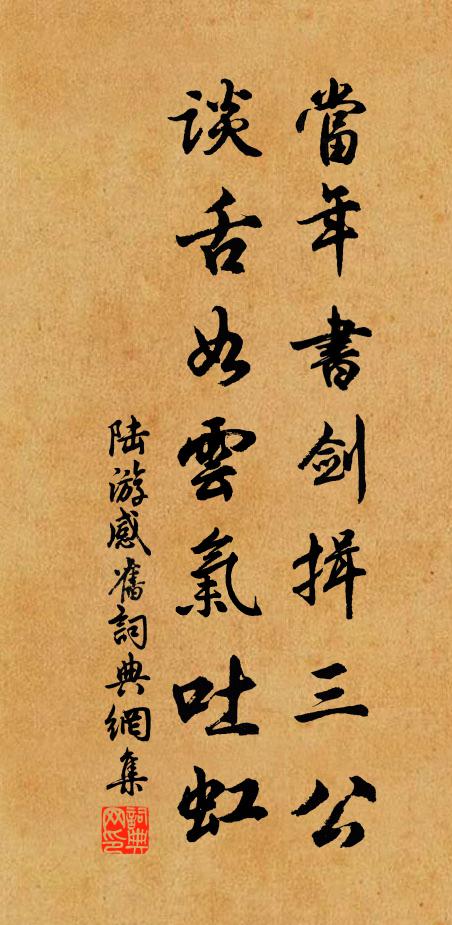 當年書劍揖三公
談舌如雲氣吐虹
陆游感舊詞典網集
詞典网印